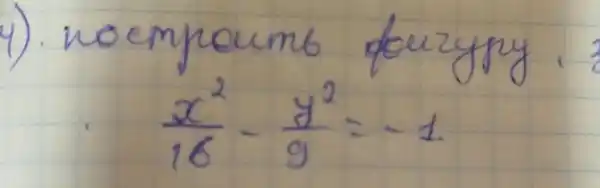 4). построить фигуру.
x²/16 - y²/9 = -1.